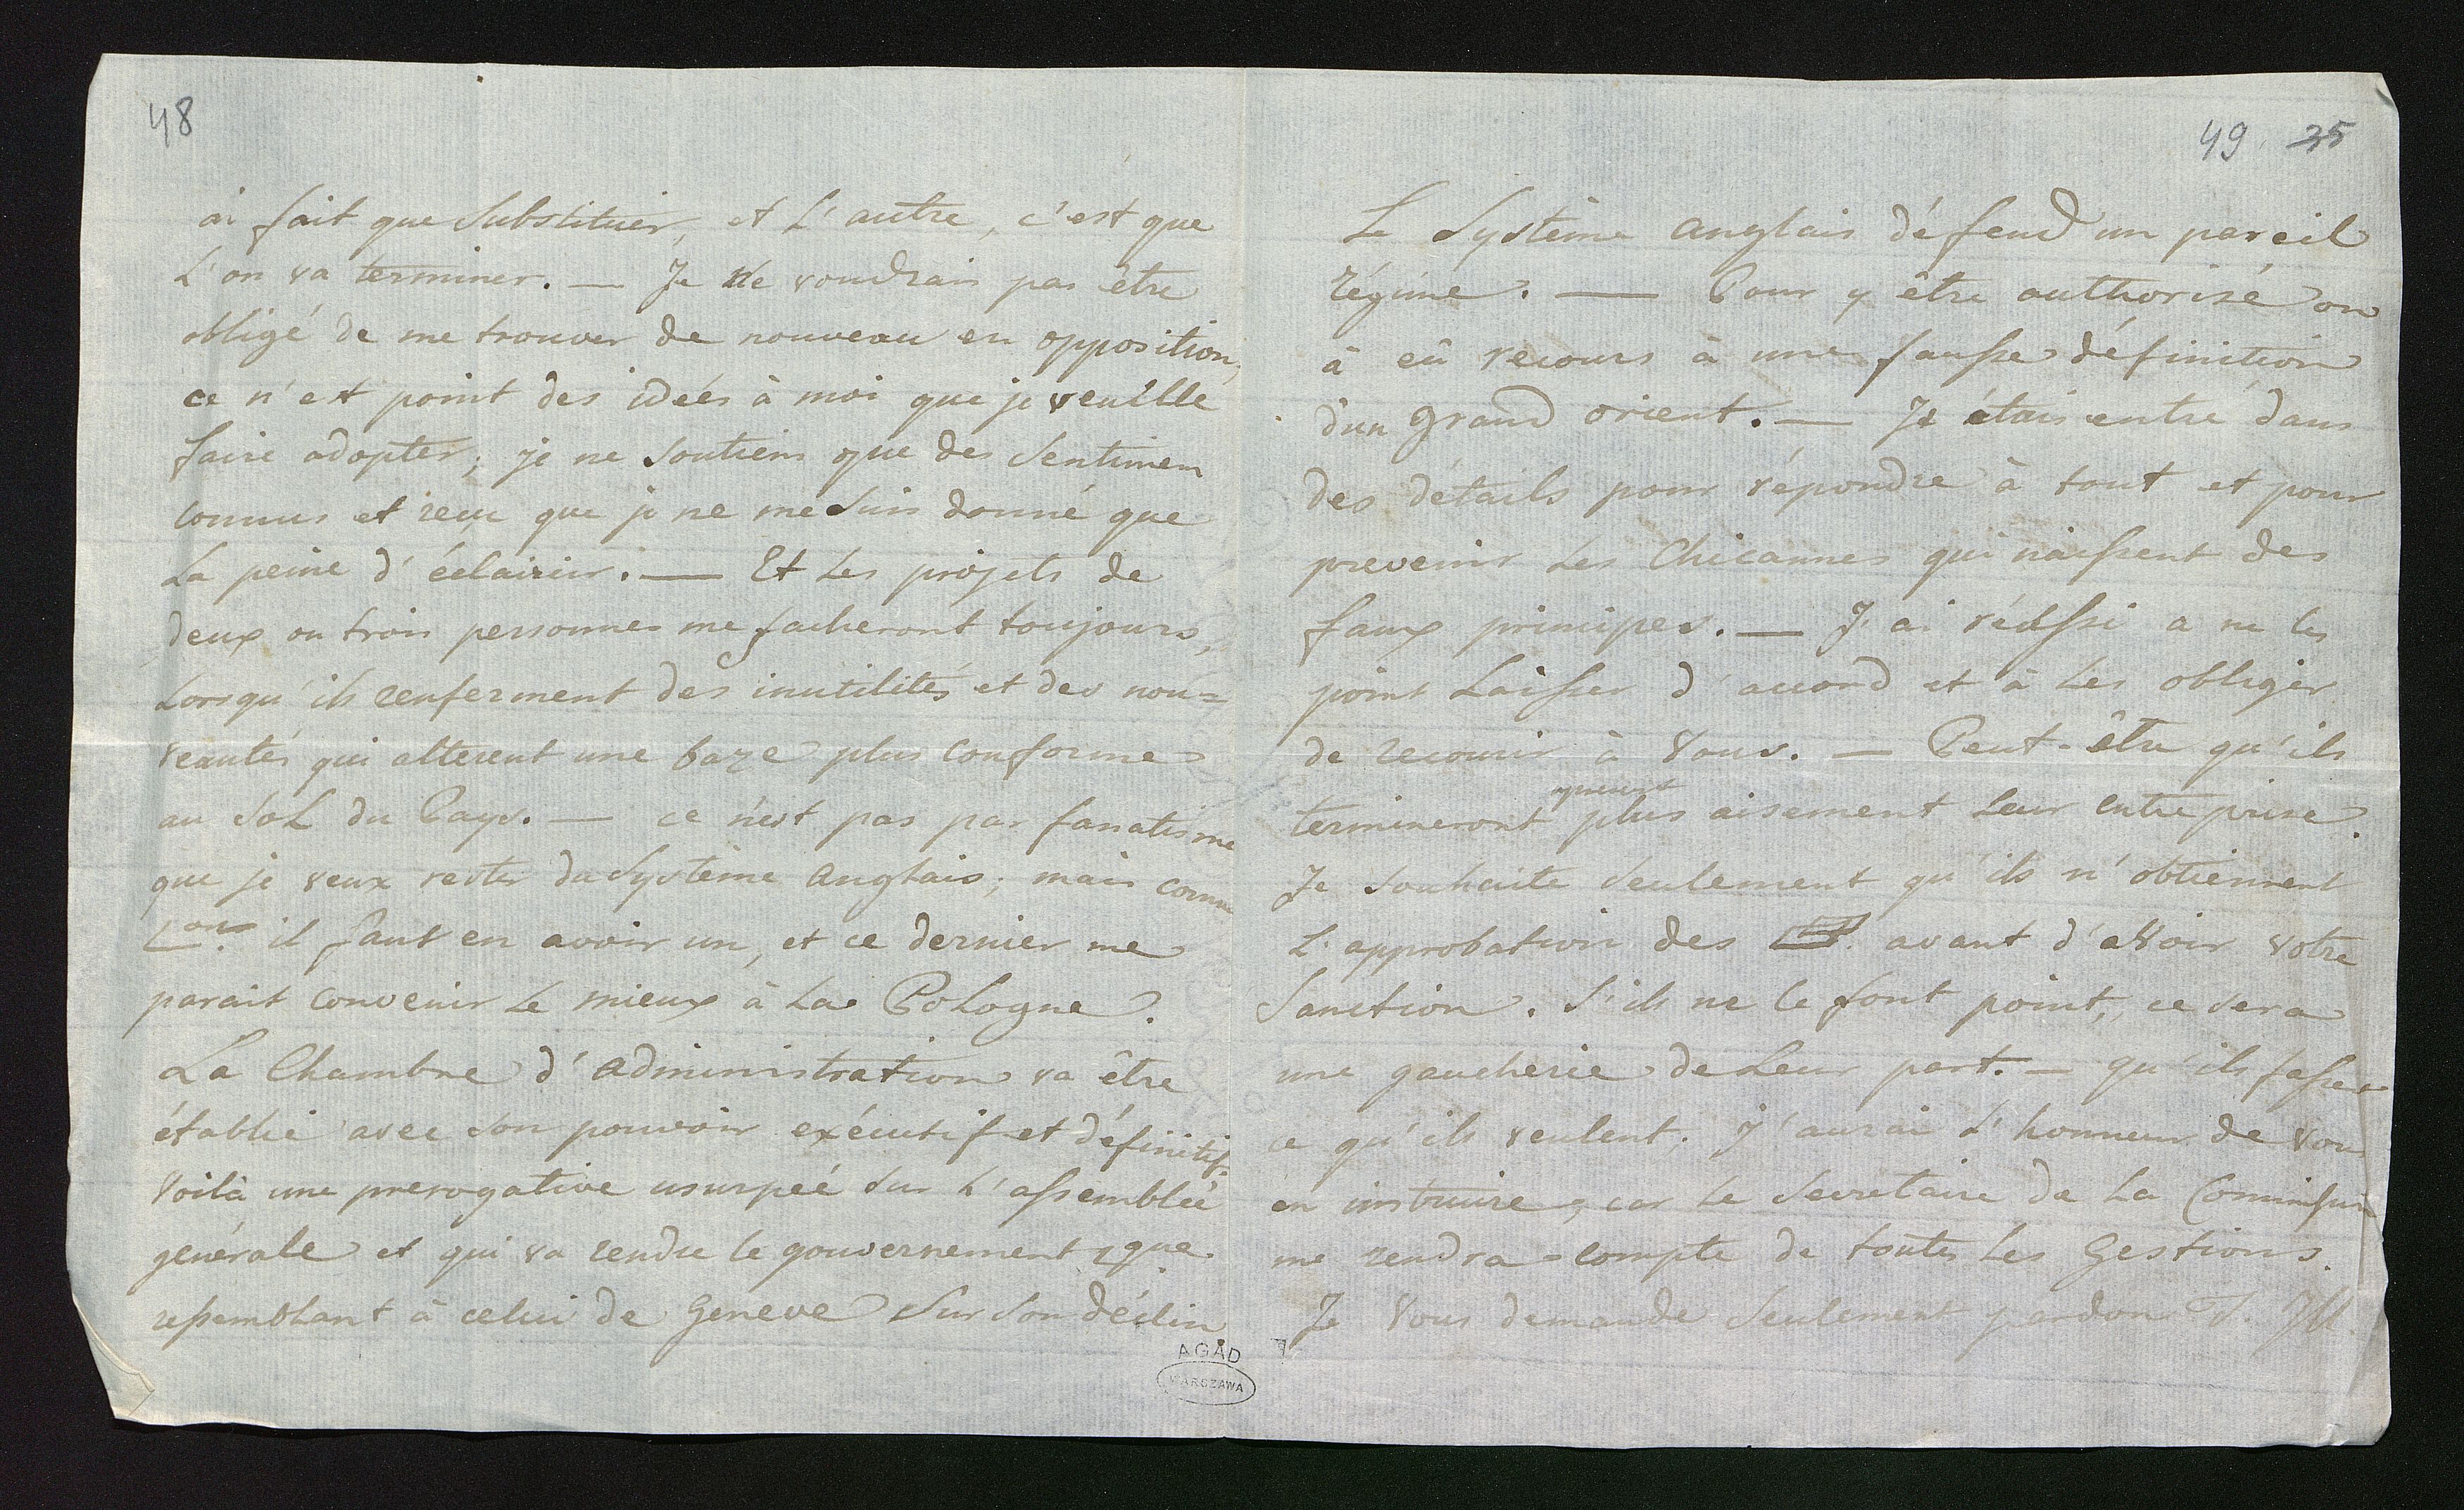 48
ai fait que substituer, et L'autre, c'est que
L'on va terminer. — Je Ne voudrais pas être
obligé de me trouver de nouveau en opposition,
ce n'est point des idées à moi que je veuille
faire adopter; je ne soutiens que des sentimen
connus et reçu que je ne me suis donné que
La peine d'éclaircir. — Et Les projets de
deux ou trois personnes me facheront toujours,
Lorsqu'ils renferment des inutilités et des nou=
veautés qui alterent une baze plus conforme
au Sol du Pays. — ce n'est pas par fanatisme
que je veux rester du Systême anglais; mais comme
il faut en avoir un, et ce dernier me
parait convenir Le mieux à La Pologne.
La Chambre d'administration va être
établie avec son pouvoir exécutif et définitif.
Voilà une prerogative usurpeé sur L'assembleé
générale et qui va rendre le gouvernement
ressemblant à celui de Geneve sur son déclin
AGAD
WARSZAWA
49. 25
Le Systême anglais défend un pareil
régime. — Pour y être authorisé on
à eû recours à une fausse définition
d'un grand orient. — Je étais entré dans
des détails pour répondre à tout et pour
prevenir Les Chicannes qui naissent des
faux principes. — J'ai réussi a ne les
point Laisser d'accord et à Les obliger
de recourir à Vous. — Peut-être qu'ils
termineront plus aisement Leur entreprise.
Je souhaite seulement qu'ils n'obtiennent
L'approbation des avant d'aVoir votre
Sanction. S'ils ne le font point, ce sera
une gaucherie de Leur part. — qu'ils fasse
ce qu'ils veulent. J'aurai L'honneur de Vous
en instruire, car Le Secretaire de La Commission
me rendra compte de toutes Les Gestions.
Je Vous demande seulement pardon T. Ill